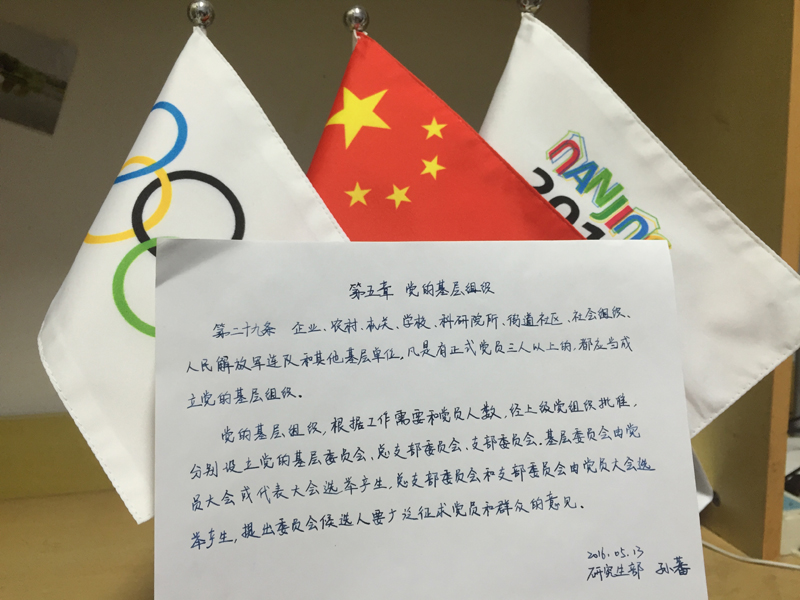 NANJING
201
第五章 党的基层组织
第二十九条 企业、农村、机关、学校、科研院所、街道社区、社会组织、
人民解放军连队和其他基层单位,凡是有正式党员三人以上的,都应当成
立党的基层组织。
党的基层组织,根据工作需要和党员人数,经上级党组织批准,
分别设立党的基层委员会、总支部委员会、支部委员会。基层委员会由党
员大会或代表大会选举产生,总支部委员会和支部委员会由党员大会选
举产生,提出委员会候选人要广泛征求党员和群众的意见。
2016.05.13
研究生部 孙蕃